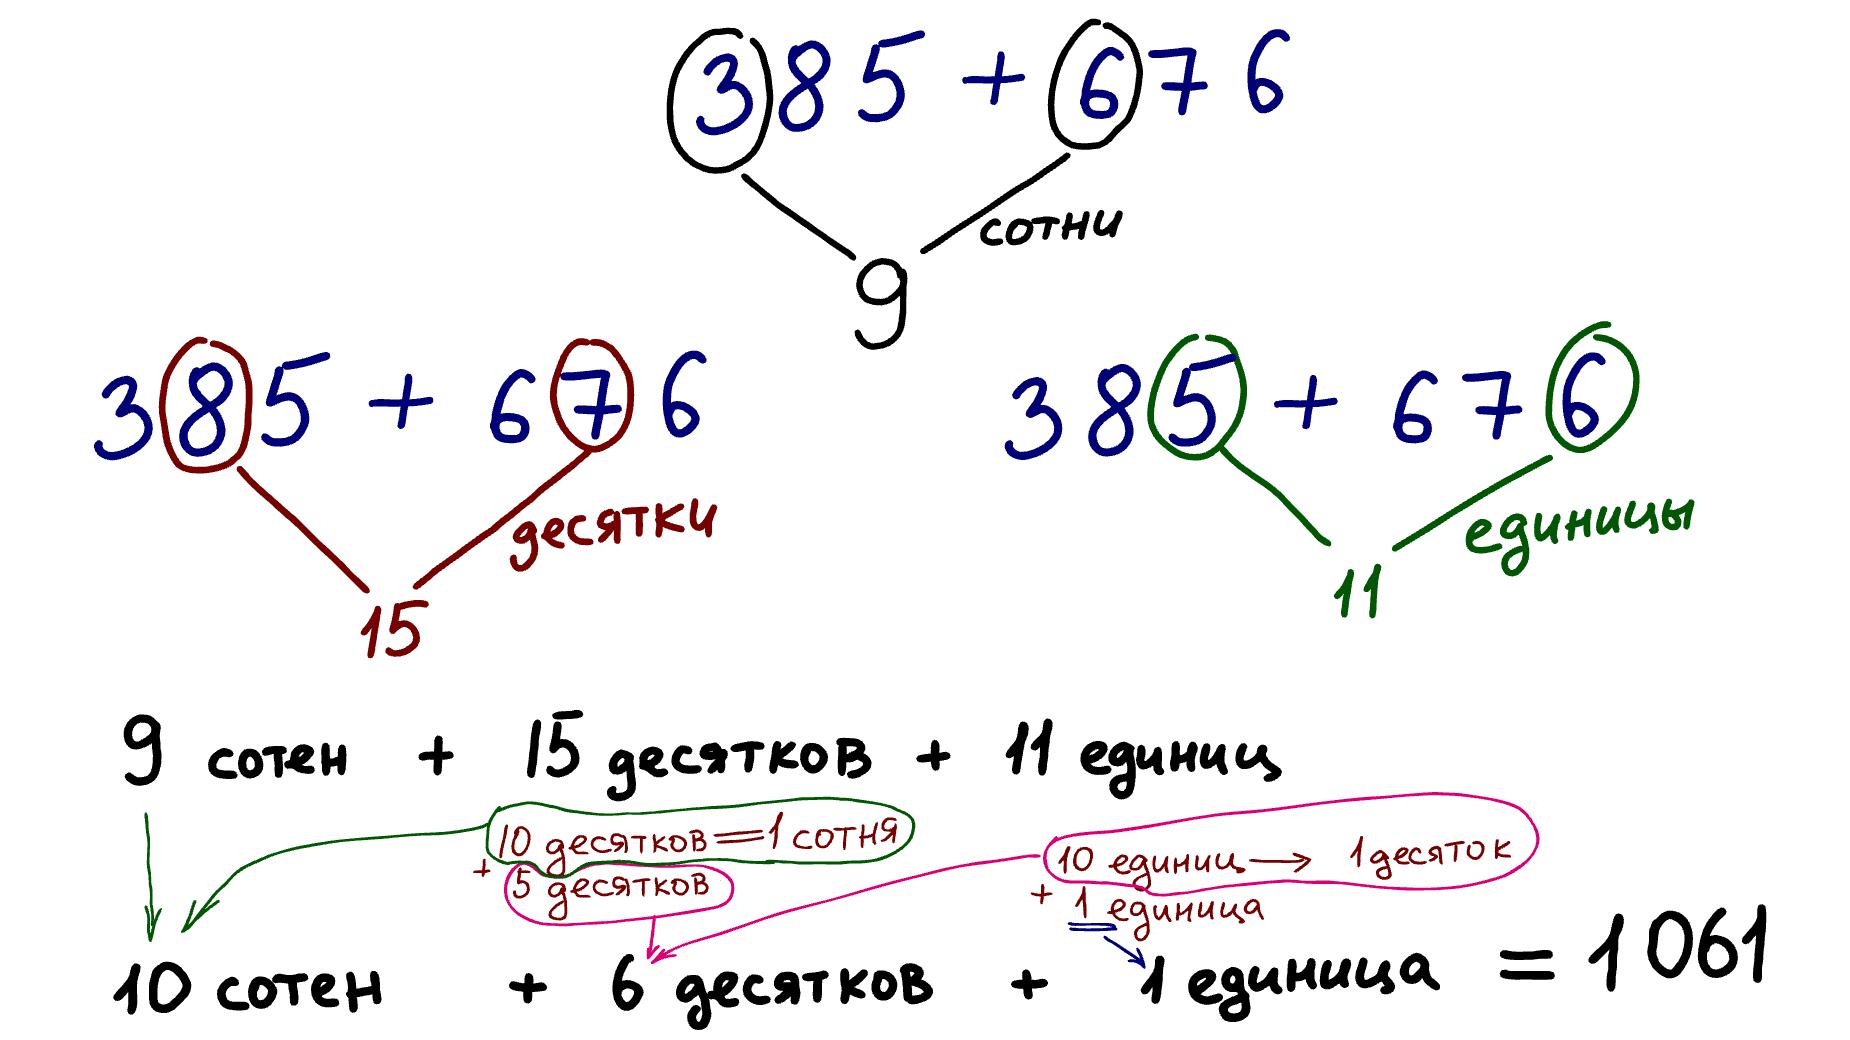 385 + 676
сотни
9
385 + 676
десятки
15
385 + 676
единицы
11
9 сотен + 15 десятков + 11 единиц
10 десятков = 1 сотня
+ 5 десятков
10 единиц → 1 десяток
+ 1 единица
10 сотен + 6 десятков + 1 единица = 1061